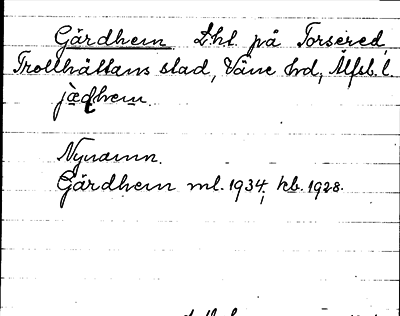 Gärdhem Lht. på Torsered,
Trollhättans stad, Väne hd, Älfsb. l.
jæ̀ḍhem.
Nynamn.
Gärdhem ml. 1934, kb. 1928.